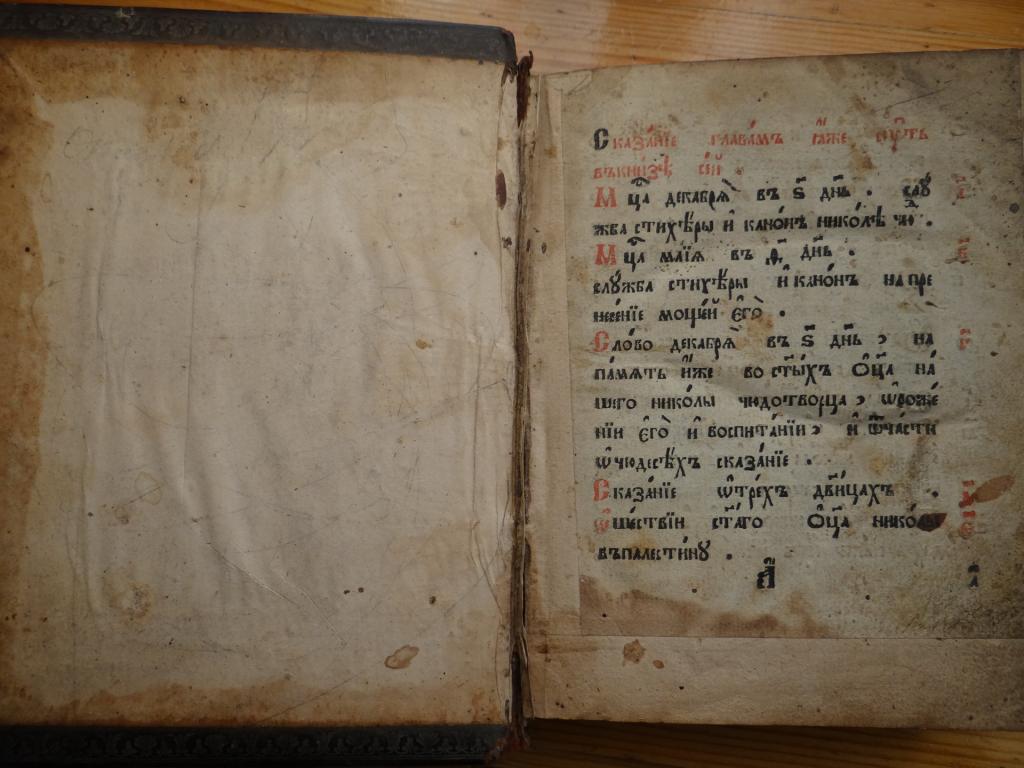 Сказа́нїе глава́мъ ꙗ҆́же сꙋ́ть
въкни́зѣ се́й .
Мц҃а декабрѧ̀ въ ѕ҃ дн҃ь . слꙋ́
жба стихѣ́ры и҆ кано́нъ нико́лѣ чю .
Мц҃а маїѧ въ ѳ҃ дн҃ь .
слꙋ́жба стихѣ́ры и҆ кано́нъ на пре
несе́нїе моще́й є҆гѡ̀ .
Сло́во декабрѧ̀ въ ѕ҃ дн҃ь , на
па́мѧть и҆́же во ст҃ы́хъ ѻ҆ц҃а на́
шего нико́лы чюдотворца , ѡ҆роже́
нїи є҆гѡ̀ и҆ воспита́нїи , и҆ ѿча́сти
ѡ҆чюдесѣ́хъ сказа́нїе .
Сказа́нїе ѡ҆тре́хъ дв҃и́цахъ .
Ѡ҆ше́ствїи ст҃а́гѡ ѻ҆ц҃а нико́лы
въпалести́нꙋ .
а҃